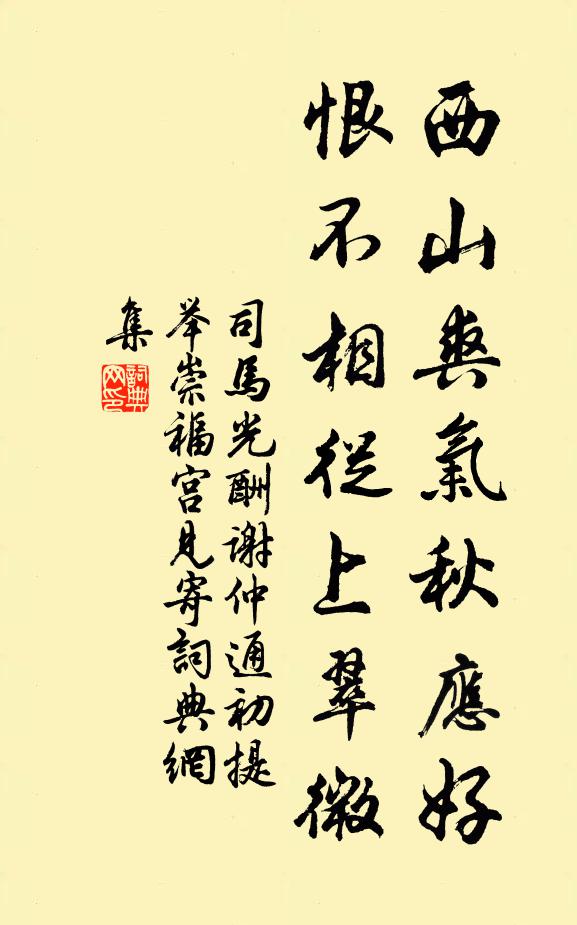 西山爽氣秋應好
恨不相從上翠微
司馬光酬謝仲通初提
举崇福宫見寄詞典網
集
詞典
网印